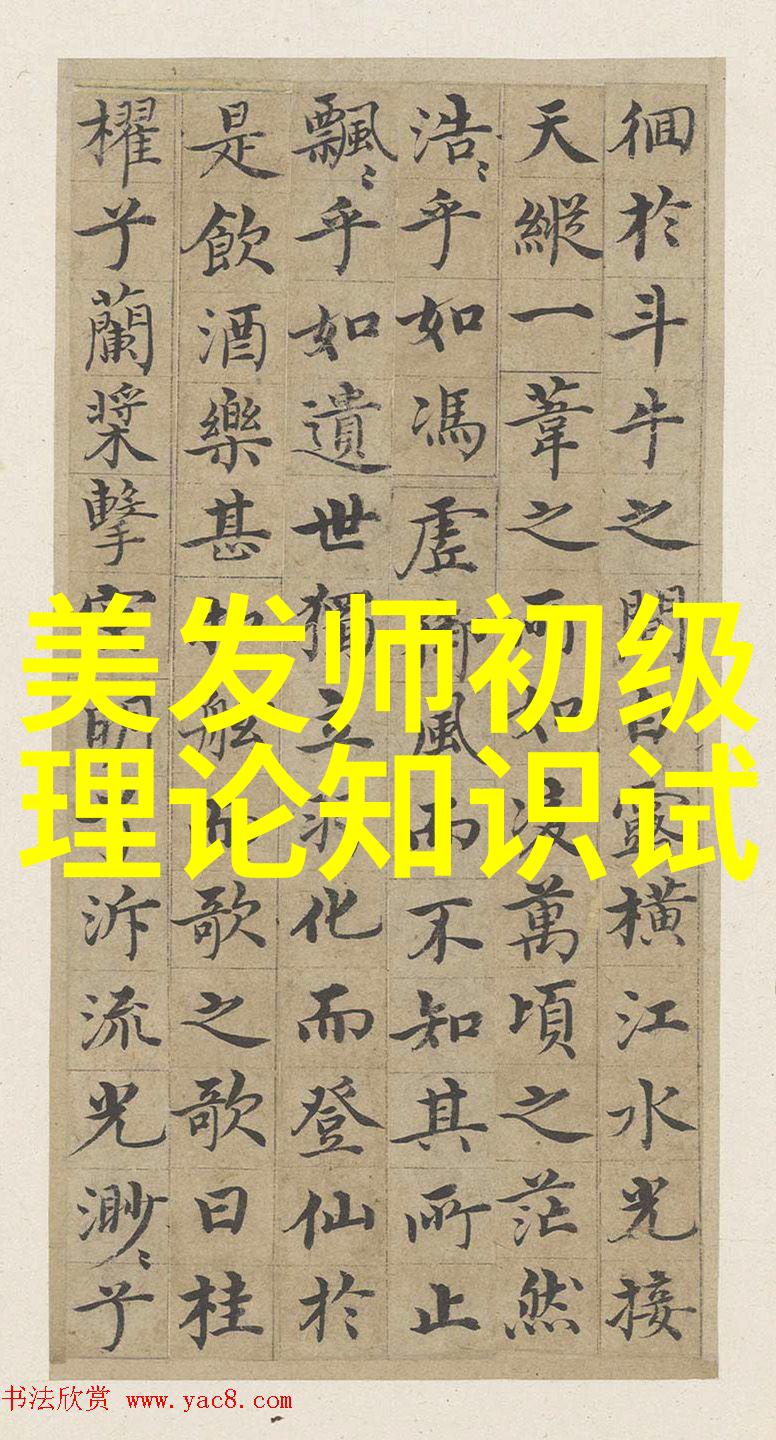 徊於斗牛之間白露橫江水光接
天縱一葦之所如淩萬頃之茫然
浩〻乎如馮虛御風而不知其所止
飄〻乎如遺世獨立羽化而登仙於
是飲酒樂甚扣舷而歌之歌曰桂
櫂兮蘭槳擊空明兮泝流光渺〻兮
美发师初级
理论知识试
书法欣赏 www.yac8.com